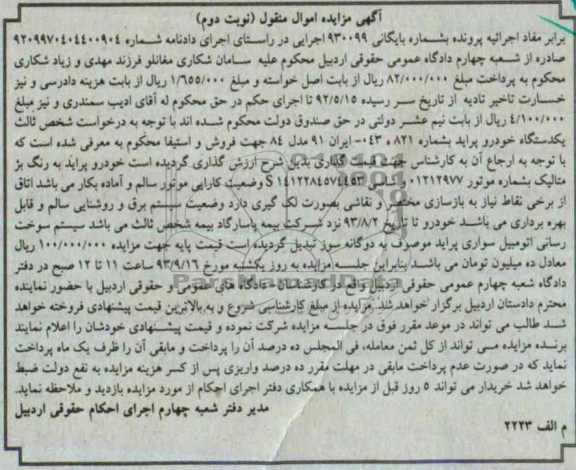 آگهی مزایده اموال منقول (نوبت دوم)
برابر مفاد اجرائیه پرونده بشماره بایگانی ۹۳۰۰۹۹ اجرایی در راستای اجرای دادنامه شماره ۹۲۰۹۹۷۰۴۰۴۴۰۰۹۰۴
صادره از شعبه چهارم دادگاه عمومی حقوقی اردبیل محکوم علیه سامان شکاری مغانلو فرزند مهدی و زیاد شکاری
محکوم به پرداخت مبلغ ۸۲/۰۰۰/۰۰۰ ریال از بابت اصل خواسته و مبلغ ۱/۶۵۵/۰۰۰ ریال از بابت هزینه دادرسی و نیز
خسارت تاخیر تادیه از تاریخ سر رسیده ۹۲/۵/۱۵ تا اجرای حکم در حق محکوم له آقای ادیب سمندری و نیز مبلغ
۴/۱۰۰/۰۰۰ ریال از بابت نیم عشر دولتی در حق صندوق دولت محکوم شده اند با توجه به درخواست شخص ثالث
یکدستگاه خودرو پراید بشماره ۸۲۱ ه ۰۴۳- ایران ۹۱ مدل ۸۴ جهت فروش و استیفا محکوم به معرفی شده است که
با توجه به ارجاع آن به کارشناس جهت قیمت گذاری بذیل شرح ارزش گذاری گردیده است خودرو پراید به رنگ بژ
متالیک بشماره موتور ۰۱۲۱۲۹۷۷ و شاسی S ۱۴۱۲۲۸۴۵۷۴۴۵۳ وضعیت کارایی موتور سالم و آماده بکار می باشد اتاق
از برخی نقاط نیاز به بازسازی مختصر و نقاشی بصورت لک گیری دارد وضعیت سیستم برق و روشنایی سالم و قابل
بهره برداری می باشد خودرو تا تاریخ ۹۳/۸/۲ نزد شرکت بیمه پاسارگاد بیمه شخص ثالث می باشد سیستم سوخت
رسانی اتومبیل سواری پراید موصوف به دوگانه سوز تبدیل گردیده است قیمت پایه جهت مزایده ۱۰۰/۰۰۰/۰۰۰ ریال
معادل ده میلیون تومان می باشد بنابراین جلسه مزایده به روز یکشنبه مورخ ۹۳/۹/۱۶ ساعت ۱۱ تا ۱۲ صبح در دفتر
دادگاه شعبه چهارم عمومی حقوقی اردبیل واقع اول کارشناسان - دادگاه های عمومی و حقوقی اردبیل با حضور نماینده
محترم دادستان اردبیل برگزار خواهد شد. مزایده از مبلغ کارشناسی شروع و به بالاترین قیمت پیشنهادی فروخته خواهد
شد طالب می تواند در موعد مقرر فوق در جلسه مزایده شرکت نموده و قیمت پیشنهادی خودشان را اعلام نمایند
برنده مزایده می تواند از کل ثمن معامله، فی المجلس ده درصد آن را پرداخت و مابقی آن را ظرف یک ماه پرداخت
نماید که در صورت عدم پرداخت مابقی در مهلت مقرر ده درصد واریزی پس از کسر هزینه مزایده به نفع دولت ضبط
خواهد شد خریدار می تواند ۵ روز قبل از مزایده با همکاری دفتر اجرای احکام از مورد مزایده بازدید و ملاحظه نماید.
مدیر دفتر شعبه چهارم اجرای احکام حقوقی اردبیل
م الف ۲۲۲۳